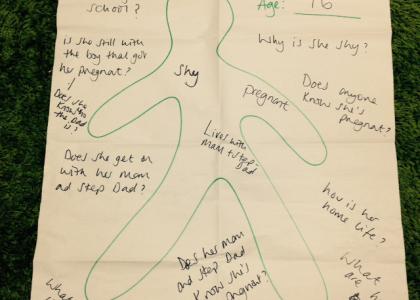 school?
Age: 16
Is she still with
the boy that got
her pregnat?
Why is she shy?
shy
pregnant
Does anyone
know she's
pregnat?
Does she
know who
the Dad
is?
Lives with
mam + step
dad
Does she get on
with her mam
ad step Dad?
how is her
home life?
Does her mam
ad step Dad
know she's
pregnat?
What
are
What